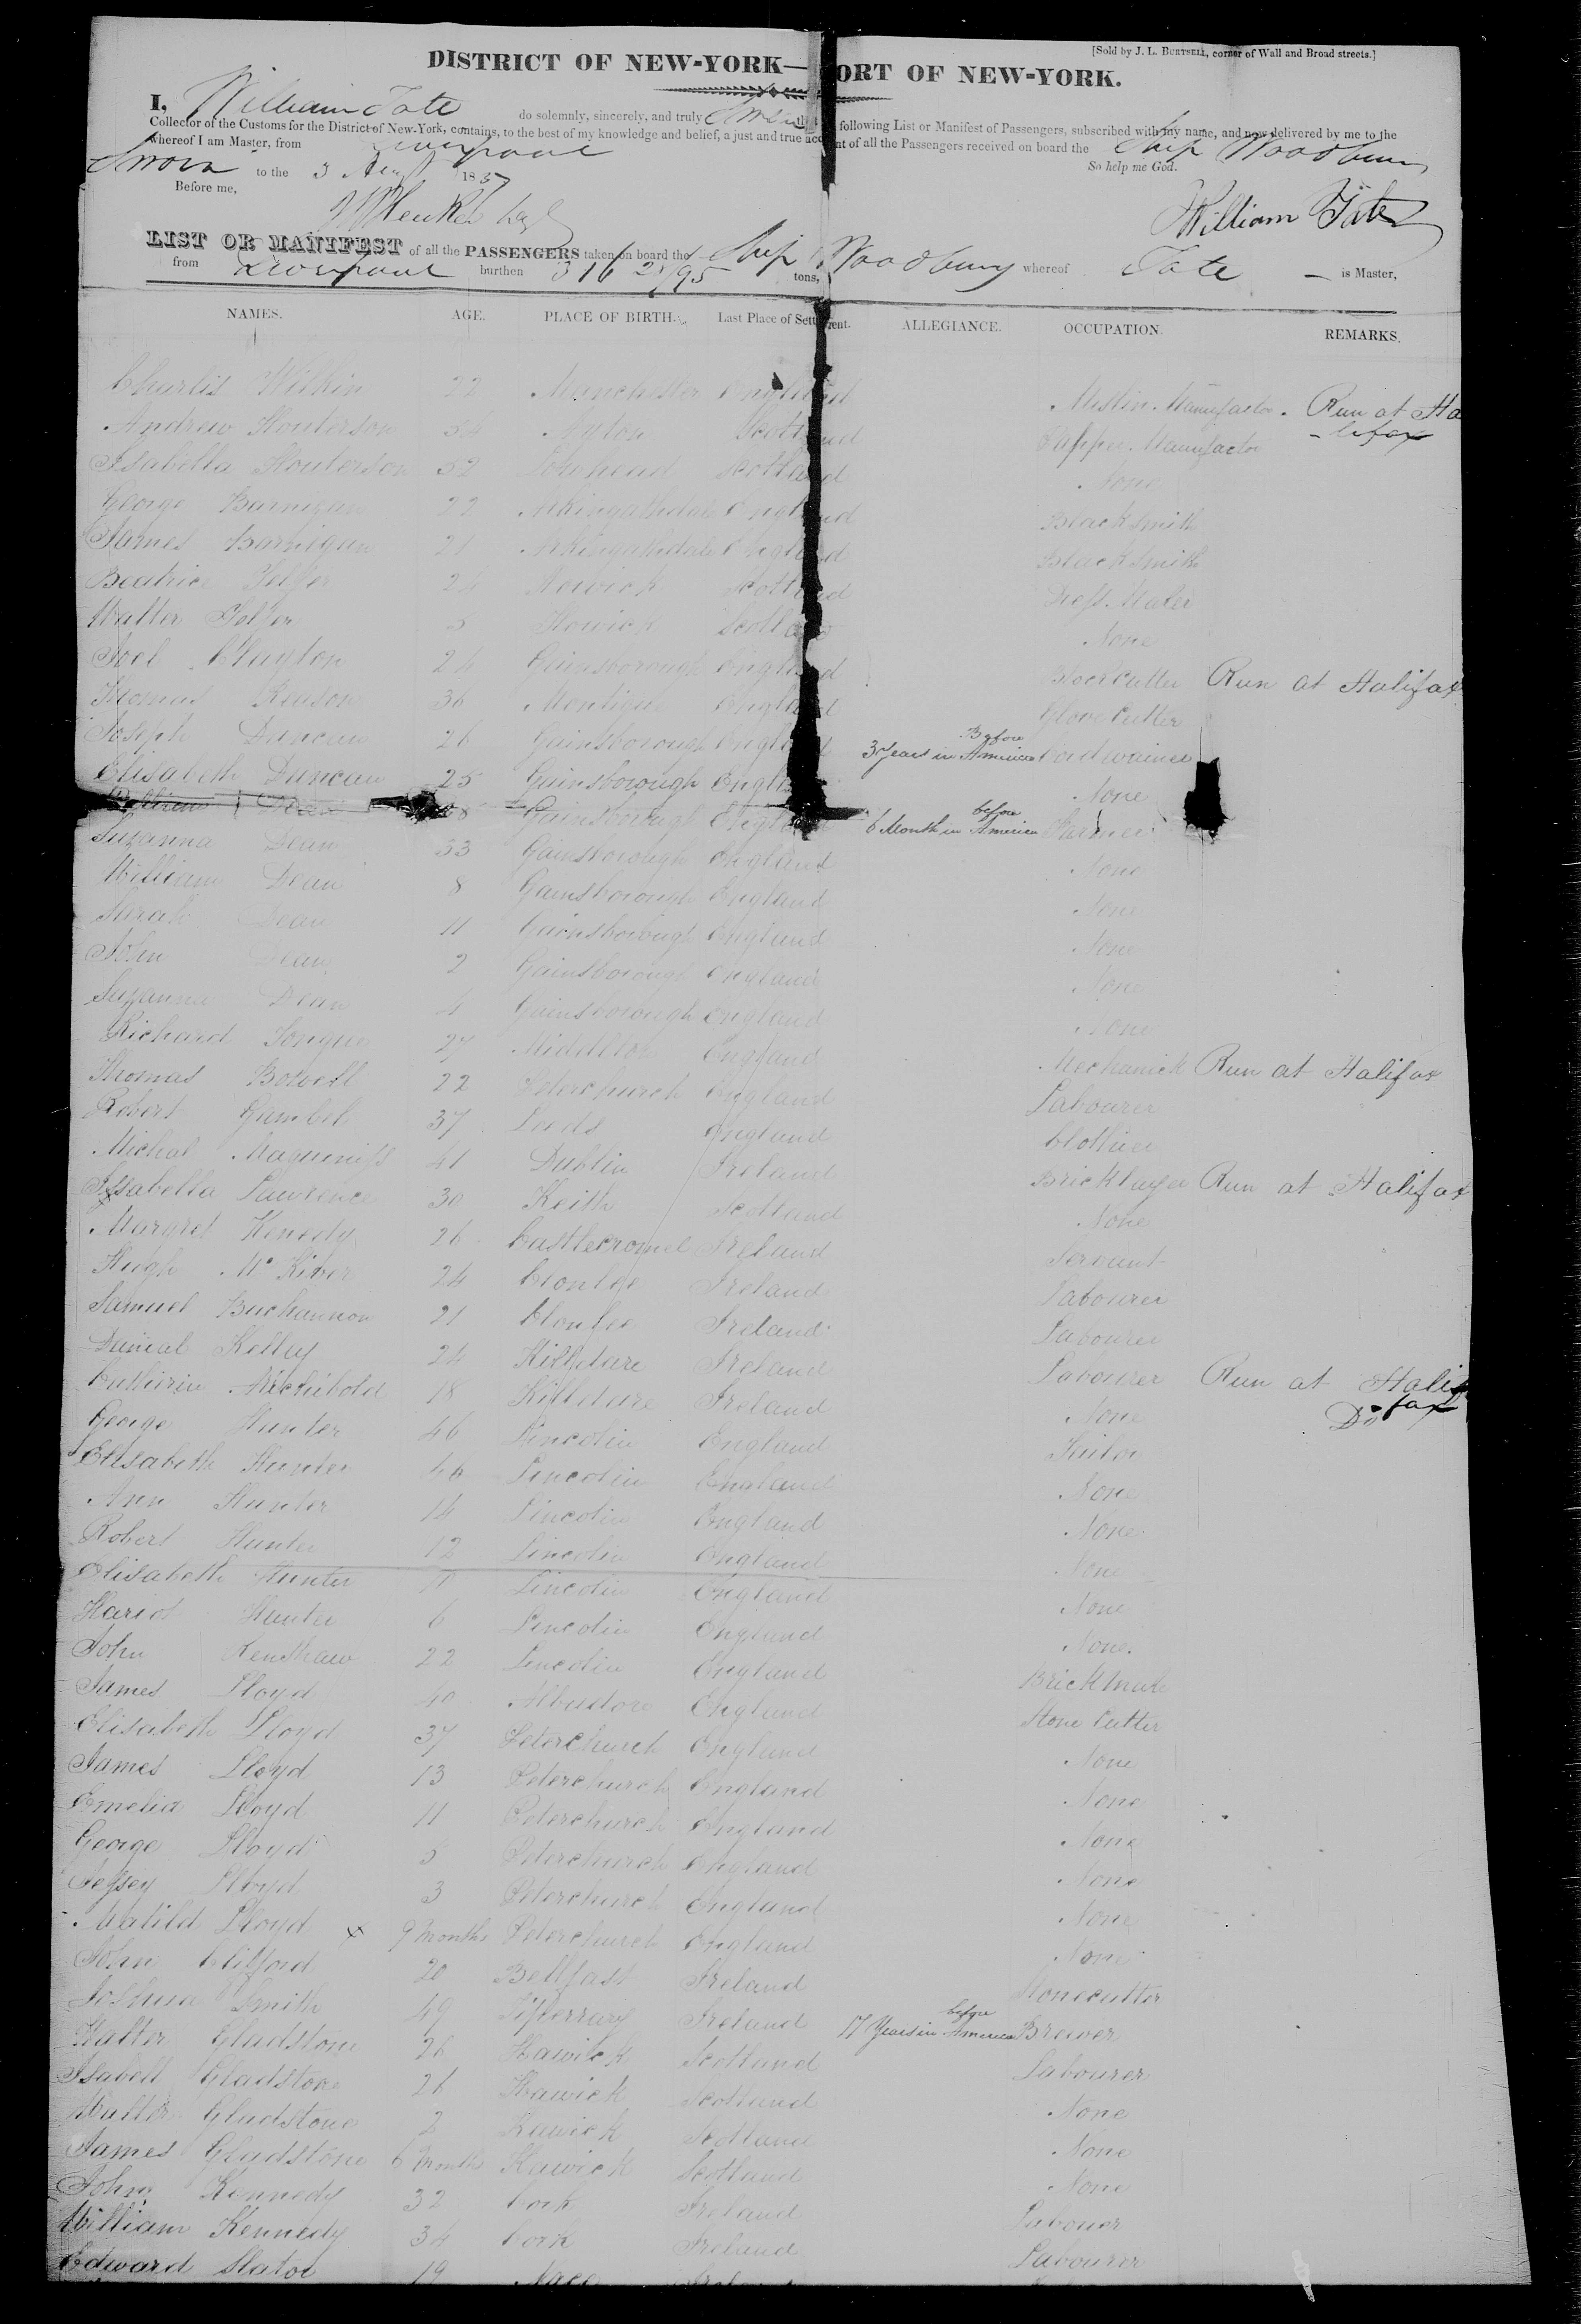 [Sold by J. L. BURTSELL, corner of Wall and Broad streets.]
DISTRICT OF NEW-YORK— ORT OF NEW-YORK.
I, William Tate do solemnly, sincerely, and truly following List or Manifest of Passengers, subscribed with my name, and now delivered by me to the
Collector of the Customs for the District of New-York, contains, to the best of my knowledge and belief, a just and true acc nt of all the Passengers received on board the Ship Woodbury
whereof I am Master, from Liverpool So help me God.
Sworn to the 3 Augt 1837
Before me, William Tate
LIST OR MANIFEST of all the PASSENGERS taken on board the Ship Woodbury whereof Tate is Master,
from Liverpool burthen 316 tons,
NAMES. AGE. PLACE OF BIRTH. Last Place of Sett ent. ALLEGIANCE. OCCUPATION. REMARKS.
Charlis Wilkin 22 Manchester England Muslin Manufactor. Run at Ha
Andrew 34 Ayton Scotland Manufactor lifax
Isabella 32 Scotland None
George Barnigan 22 England Blacksmith
James Barnigan 21 England Blacksmith
Beatrice Telfer 24 Howick Scotland Dress Maker
Walter Telfer Howick Scotland None
Joel Clayton 24 Gainsborough England Block Cutter Run at Halifax
Thomas Reason 36 England Glove Cutter
Joseph Duncan 26 Gainsborough England 3 Years in America Before Cordwainer
Elisabeth Duncan 25 Gainsborough England None
William Dean Gainsborough England 6 Month in America before Farmer
Suzanna Dean 33 Gainsborough England None
William Dean 8 Gainsborough England None
Sarah Dean 11 Gainsborough England None
John Dean 2 Gainsborough England None
Suzanna Dean Gainsborough England None
Richard Tongue 27 Middleton England Mechanick Run at Halifax
Thomas 22 Peterchurch England Labourer
Robert Gambel 37 Leeds England Clothier
Michal Maguiniss 41 Dublin Ireland Bricklayer Run at Halifax
Issabella Lawrence 30 Keith Scotland None
Margret Kenedy 26 Ireland Servant
Hugh 24 Clonlee Ireland Labourer
Samuel Buchannon 21 Clonlee Ireland Labourer
Danial Kelley 24 Killdare Ireland Labourer Run at Halifax
Catherin Archibold 18 Killdare Ireland None Do
George Hunter 46 Lincolin England Tailor
Elisabeth Hunter 44 Lincolin England None
Ann Hunter 14 Lincolin England None
Robert Hunter 12 Lincolin England None
Elisabeth Hunter 11 Lincolin England None
Hariot Hunter 6 Lincolin England None.
John Renshaw 22 Lincolin England Brickmak
James Lloyd 40 England Stone Cutter
Elisabeth Lloyd 37 Peterchurch England None
James Lloyd 13 Peterchurch England None
Emelia Lloyd 11 Peterchurch England None
George Lloyd 5 Peterchurch England None
Jessey Lloyd 3 Peterchurch England None
Matild Lloyd x 9 Months Peterchurch England None
John Clifford 20 Bellfast Ireland Stonecutter
Joshua Smith 49 Tipperrary Ireland 17 Years in America before Brewer
Walter Gladstone 26 Hawick Scotland Labourer
Isabell Gladstone 26 Hawick Scotland None
Walter Gladstone 2 Hawick Scotland None
James Gladstone 6 Months Hawick Scotland None
John Kennedy 32 Cork Ireland Labourer
William Kennedy 34 Cork Ireland Labourer
Edward Slator 19